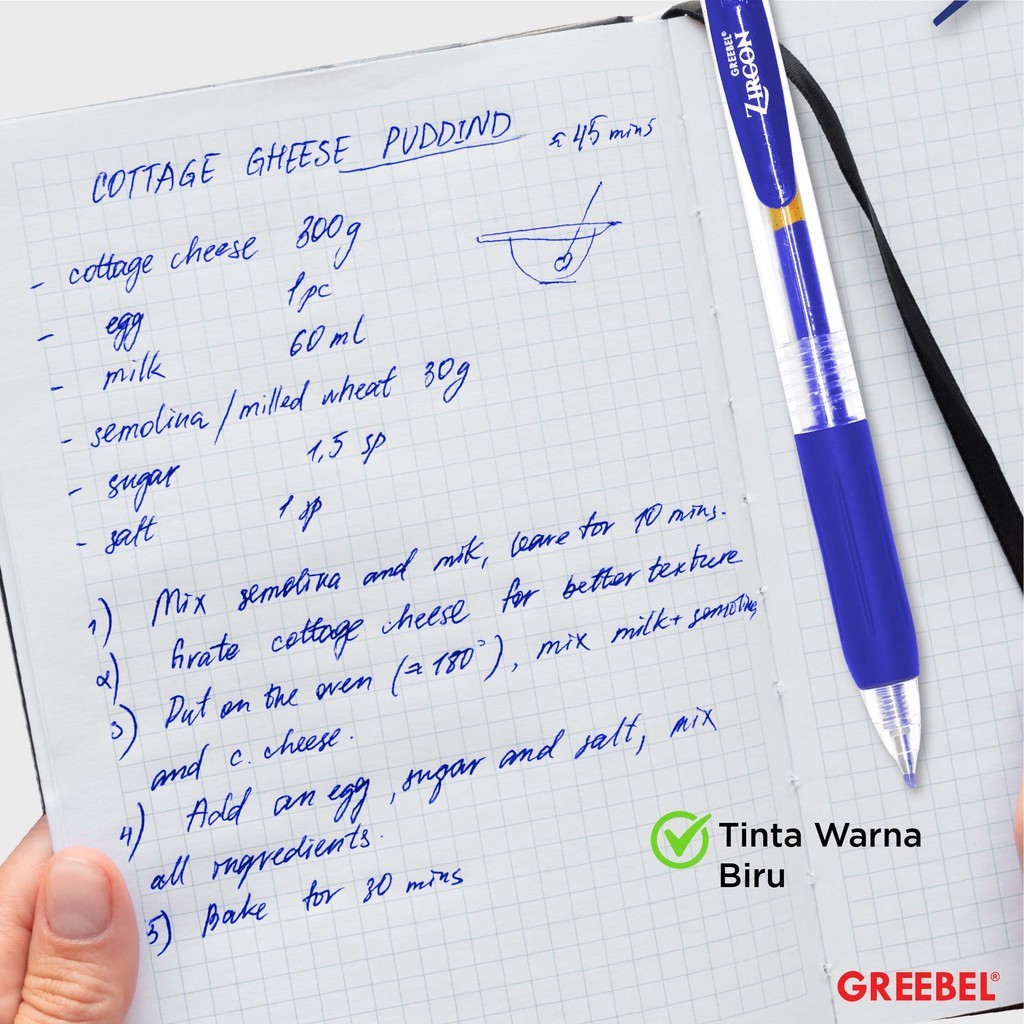 COTTAGE GHEESE PUDDIND ≈ 45 mins
- cottage cheese 300g
- egg 1 pc
- milk 60 ml
- semolina / milled wheat 30g
- sugar 1,5 sp
- salt 1 sp
1) Mix semolina and milk, leave for 10 mins.
2) Grate cottage cheese for better texture
3) Put on the oven (≈ 180°), mix milk + semolina
and c. cheese.
4) Add an egg, sugar and salt, mix
all ingredients.
5) Bake for 30 mins
GREEBEL®
ZIRCON
Tinta Warna
Biru
GREEBEL®